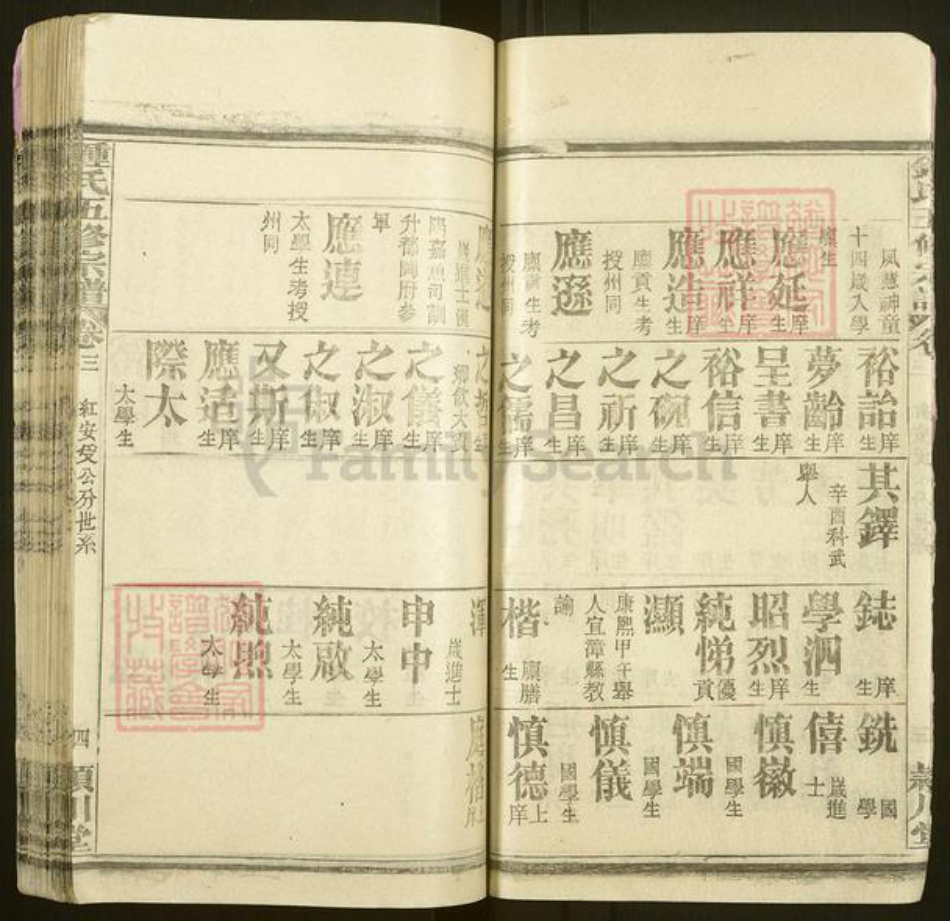 夙慧神童
十四歲入學
廩生
應延 庠生
應祥 庠生
應造 庠生
廩貢生考
授州同
應遜
廩貢生考
授州同
裕詒 庠生
夢齡 庠生
呈書 庠生
裕信 庠生
之硯 庠生
之祈 庠生
之昌 庠生
之儒 庠生
其鐸
辛酉科武
舉人
鋕 庠生
學泗 生
昭烈 庠生
純悌 優貢
灝
康熙甲午舉
人宜漳縣教
諭
楷 廩膳生
銑 國學
僖 歲進士
慎徽
國學生
慎端
國學生
慎儀
國學生
慎德 上庠
歲進士例
升都閫府參
軍
應連
太學生考授
州同
鄉飲大賓
之儀 庠生
之淑 庠生
之俶 庠生
又斯 庠生
應适 庠生
際太
太學生
歲進士
申中
太學生
純啟
太學生
純煦
太學生
鍾氏五修宗譜 卷三
紅安受公分世系
四
潁川堂
FamilySearch